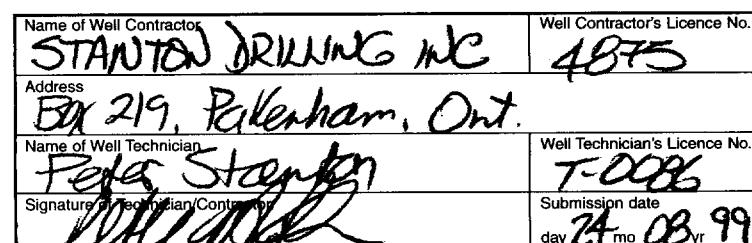 Name of Well Contractor
STANTON DRILLING INC
Well Contractor's Licence No.
4875
Address
Box 219, Pakenham, Ont.
Name of Well Technician
Peter Stanton
Well Technician's Licence No.
T-0086
Signature of Technician/Contractor
Submission date
day 24 mo 08 yr 99